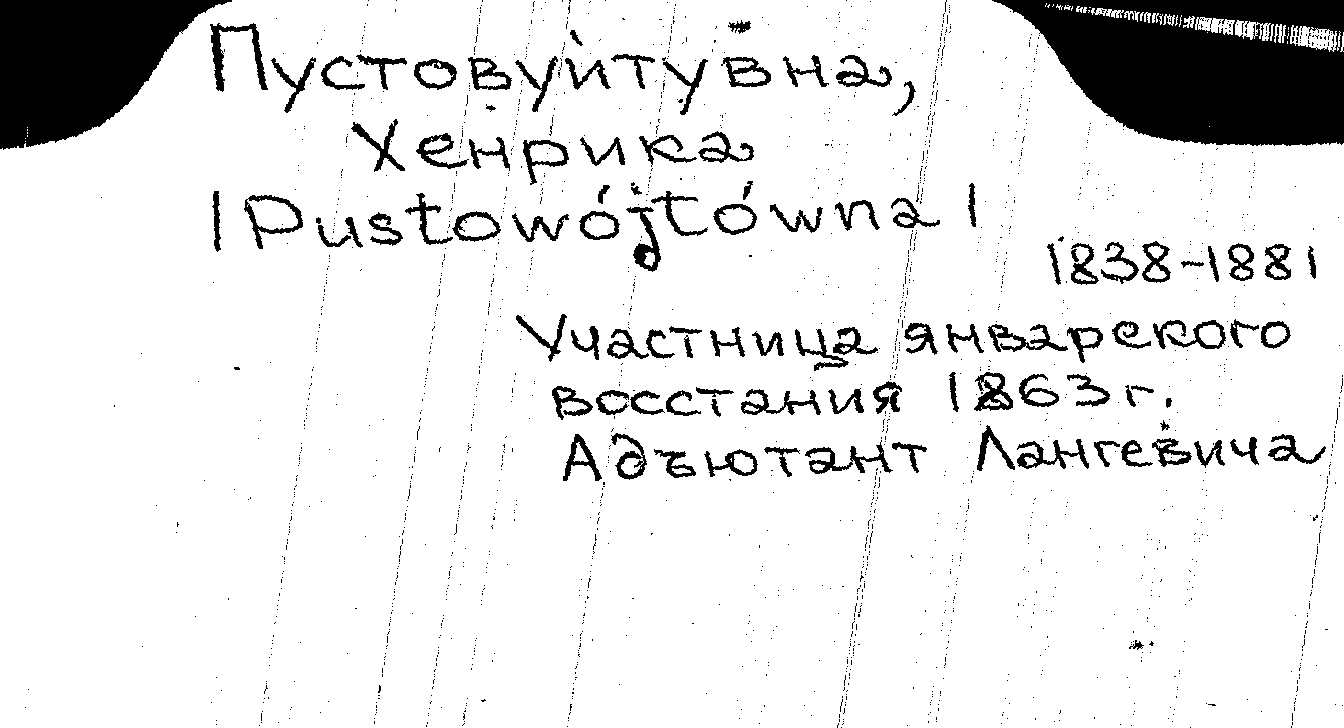 Пустовуйтувна,
Хенрика
|Pustowójtówna|
1838-1881
Участница январского
восстания 1863 г.
Адъютант Лангевича